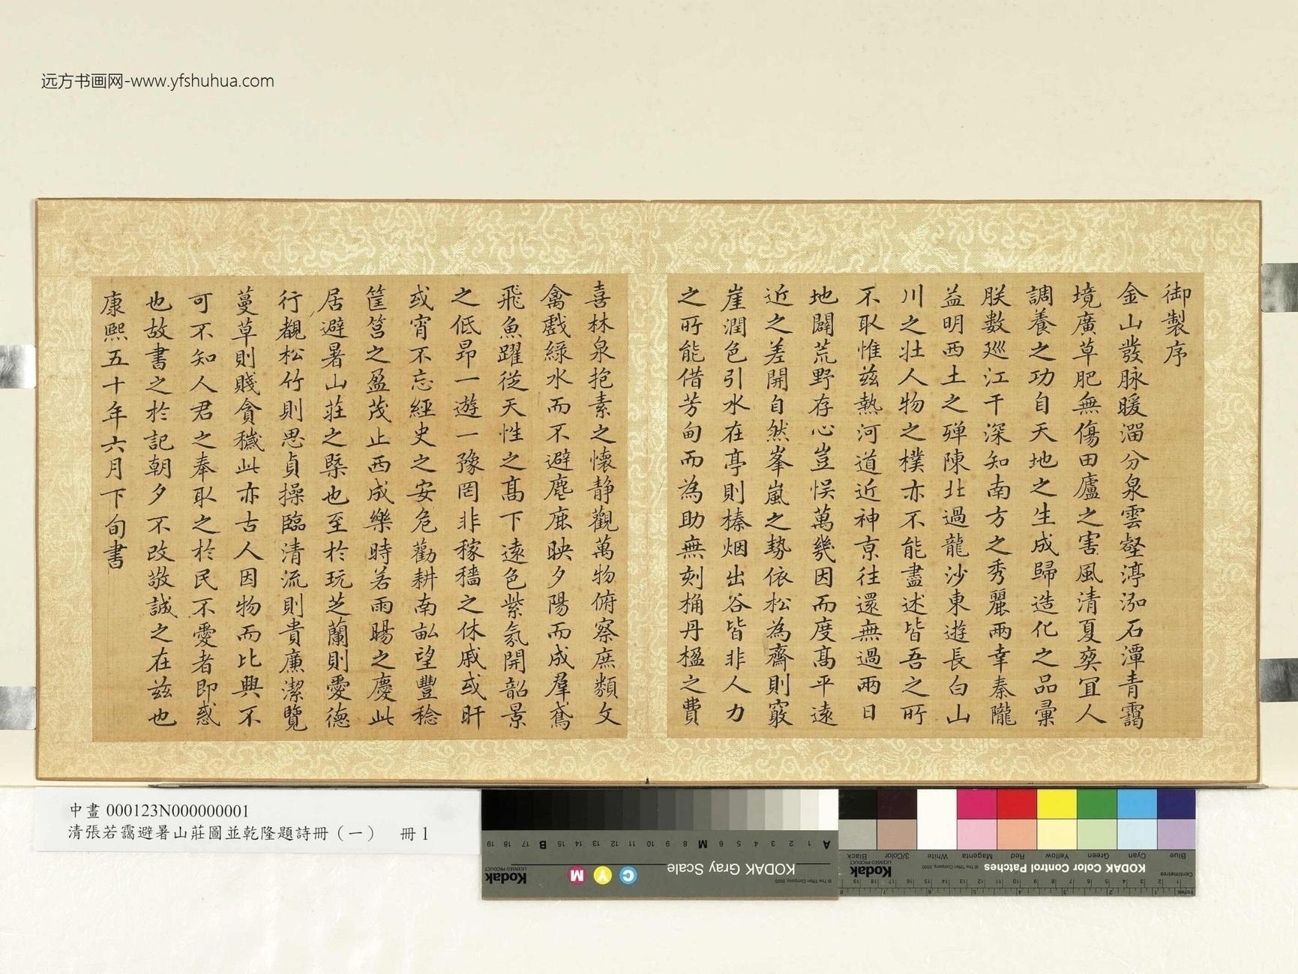 远方书画网-www.yfshuhua.com
御製序
金山發脉暖溜分泉雲壑渟泓石潭青靄
境廣草肥無傷田廬之害風清夏奭宜人
調養之功自天地之生成歸造化之品彙
朕數廵江干深知南方之秀麗兩幸秦隴
益明西土之殫陳北過龍沙東遊長白山
川之壯人物之樸亦不能盡述皆吾之所
不取惟兹熱河道近神京往還無過兩日
地闢荒野存心豈悮萬幾因而度髙平遠
近之差開自然峯嵐之勢依松為齋則竅
崖潤色引水在亭則榛烟出谷皆非人力
之所能借芳甸而為助無刻桷丹楹之費
喜林泉抱素之懷静觀萬物俯察庶類文
禽戲緑水而不避麀鹿映夕陽而成羣鳶
飛魚躍從天性之髙下遠色紫氛開韶景
之低昂一遊一豫罔非稼穡之休戚或旰
或宵不忘經史之安危勸耕南畝望豐稔
筐筥之盈茂止西成樂時若雨暘之慶此
居避暑山莊之槩也至於玩芝蘭則愛德
行覩松竹則思貞操臨清流則貴廉潔覽
蔓草則賤貪穢此亦古人因物而比興不
可不知人君之奉取之於民不愛者即惑
也故書之於記朝夕不改敬誠之在兹也
康熙五十年六月下旬書
中畫 000123N000000001
清張若靄避暑山莊圖並乾隆題詩冊（一） 冊 1
KODAK Gray Scale
Kodak
C Y M
A 1 2 3 4 5 6 M 8 9 10 11 12 13 14 15 B 17 18 19
KODAK Color Control Patches
Kodak
Blue Cyan Green Yellow Red Magenta White 3/Color Black